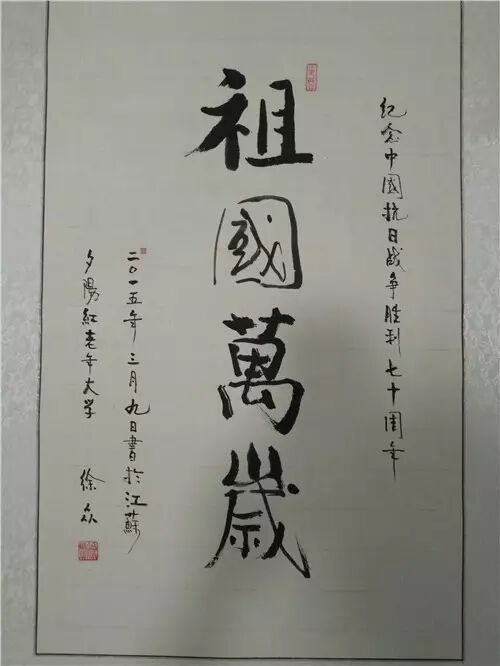 纪念中國抗日战争胜利七十周年
祖國萬歲
二〇一五年三月九日書於江蘇
夕陽紅老年大学 徐众